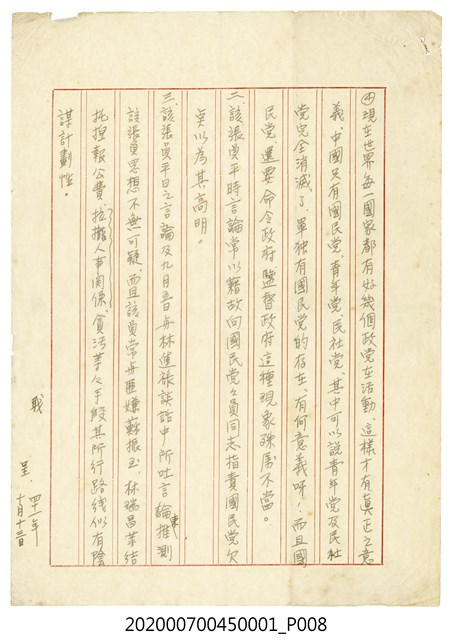 ④現在世界每一國家都有好幾個政党在活動、這樣才有真正之意
義、中國只有國民党、青年党、民社党、其中可以說青年党及民社
党完全消滅了單独有國民党的存在、有何意義呀！而且國
民党還要命令政府監督政府這種現象殊属不當。
二、該張員平時言論常以籍故向國民党々員同志指責國民党欠
 以為其高明。
三、該張員平日之言論及九月 日与林進 談話中所吐言論來推測
該張員思想不無可疑、而且該員常与匪嫌蘇振玉、林瑞昌等結
托捏報公費、拉攏人事関係、貪污等々手段其所行路线似有陰
謀計劃性。
戟
呈、四十一年
十月十三日
202000700450001_P008